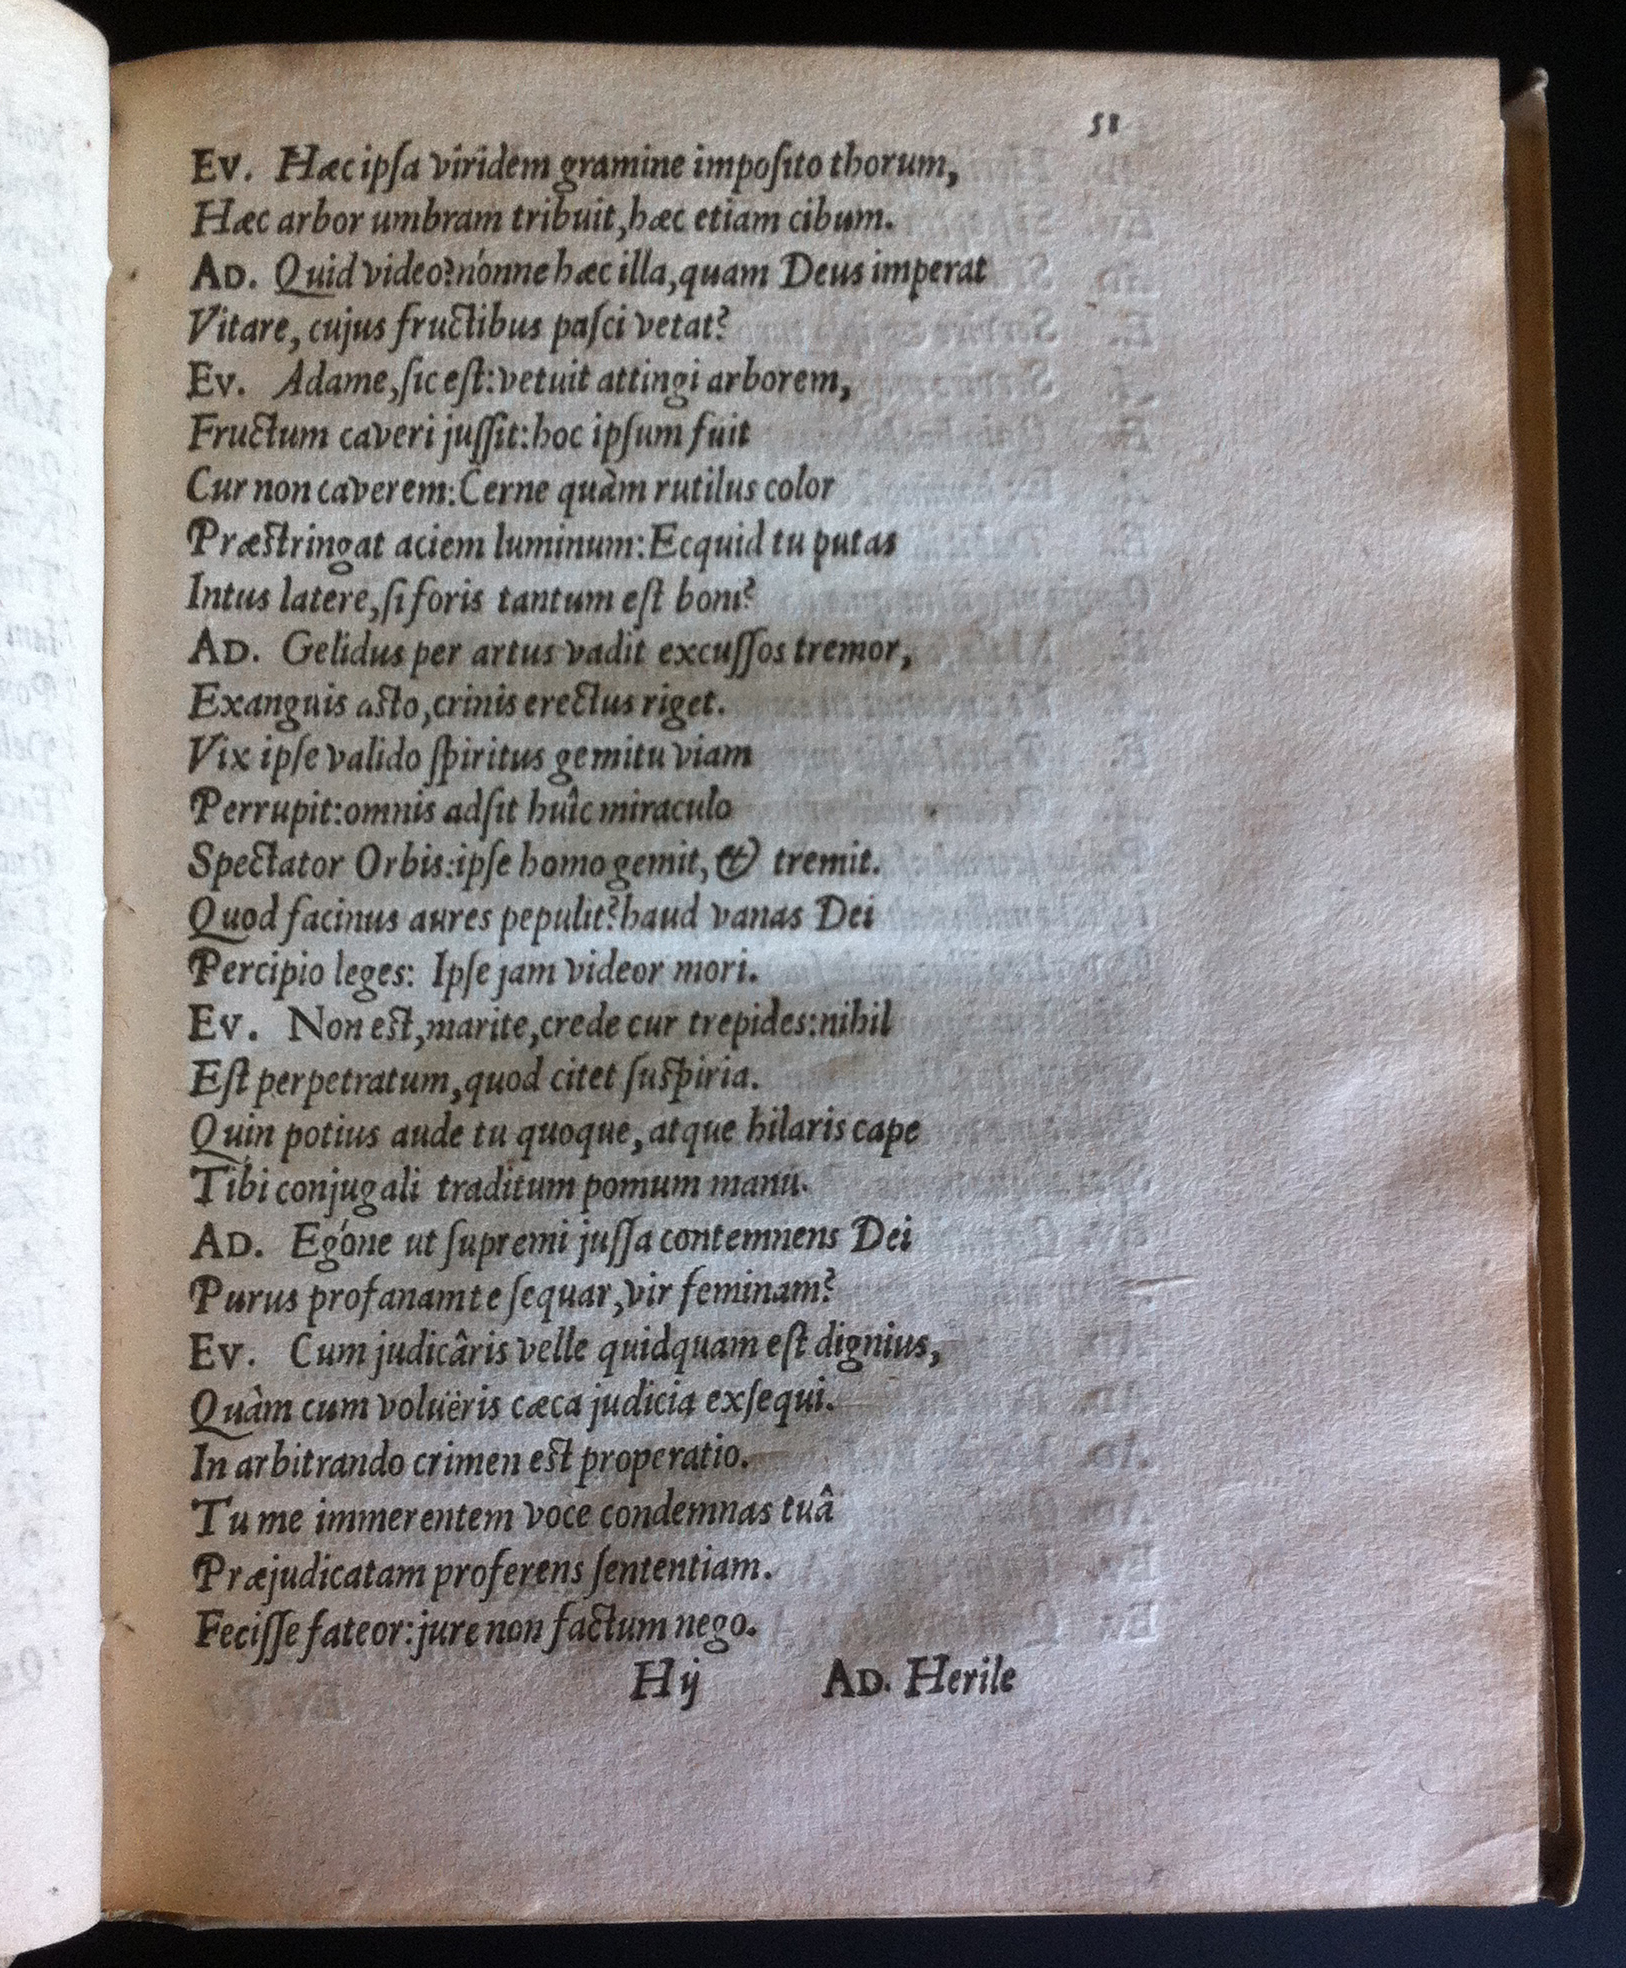 51
Ev. Hæc ipſa viridem gramine impoſito thorum,
Hæc arbor umbram tribuit, hæc etiam cibum.
Ad. Quid video? nónne hæc illa, quam Deus imperat
Vitare, cujus fructibus paſci vetat?
Ev. Adame, ſic eſt: vetuit attingi arborem,
Fructum caveri juſſit: hoc ipſum fuit
Cur non caverem: Cerne quàm rutilus color
Præstringat aciem luminum: Ecquid tu putas
Intus latere, ſi foris tantum eſt boni?
Ad. Gelidus per artus vadit excuſſos tremor,
Exanguis asto, crinis erectus riget.
Vix ipſe valido ſpiritus gemitu viam
Perrupit: omnis adſit huîc miraculo
Spectator Orbis: ipſe homo gemit, & tremit.
Quod facinus aures pepulit? haud vanas Dei
Percipio leges: Ipſe jam videor mori.
Ev. Non est, marite, crede cur trepides: nihil
Eſt perpetratum, quod citet ſuspiria.
Quin potius aude tu quoque, atque hilaris cape
Tibi conjugali traditum pomum manu.
Ad. Egóne ut ſupremi juſſa contemnens Dei
Purus profanam te ſequar, vir feminam?
Ev. Cum judicâris velle quidquam eſt dignius,
Quàm cum voluëris cæca judicia exſequi.
In arbitrando crimen est properatio.
Tu me immerentem voce condemnas tuâ
Præjudicatam proferens ſententiam.
Feciſſe fateor: jure non factum nego.
Hij Ad. Herile